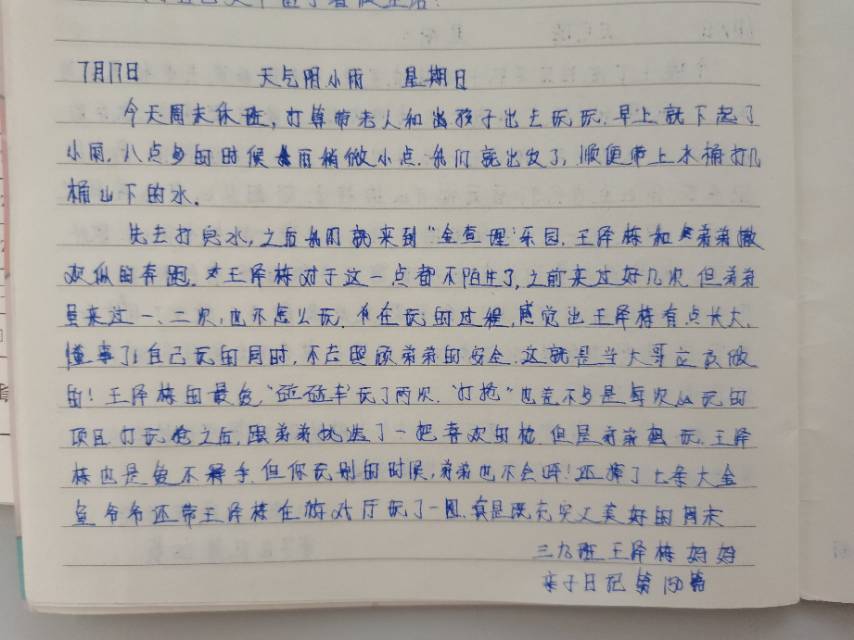 7月17日 天气阴小雨 星期日
今天周末休班,打算带老人和孩子出去玩玩.早上就下起了
小雨.八点多的时候雨稍微小点.我们就出发了,顺便带上水桶打几
桶山下的水.
先去打完水,之后我们就来到"金查理"乐园.王泽栋和弟弟撒
欢似的奔跑.王泽栋对于这一点都不陌生了,之前来过好几次.但弟弟
是来过一、二次,也不怎么玩.在玩的过程,感觉出王泽栋有点长大,
懂事了!自己玩的同时,不忘照顾弟弟的安全.这就是当大哥应该做
的!王泽栋的最爱,"碰碰车"玩了两次."打抢"也差不多是每次必玩的
项目.打玩枪之后,跟弟弟挑选了一把喜欢的枪.但是弟弟想玩.王泽
栋也是爱不释手.但你玩别的时候,弟弟也不会呀!还捞了七条大金
鱼.爷爷还带王泽栋在游戏厅玩了一圈.真是既充实又美好的周末
三九班王泽栋妈妈
亲子日记第130篇